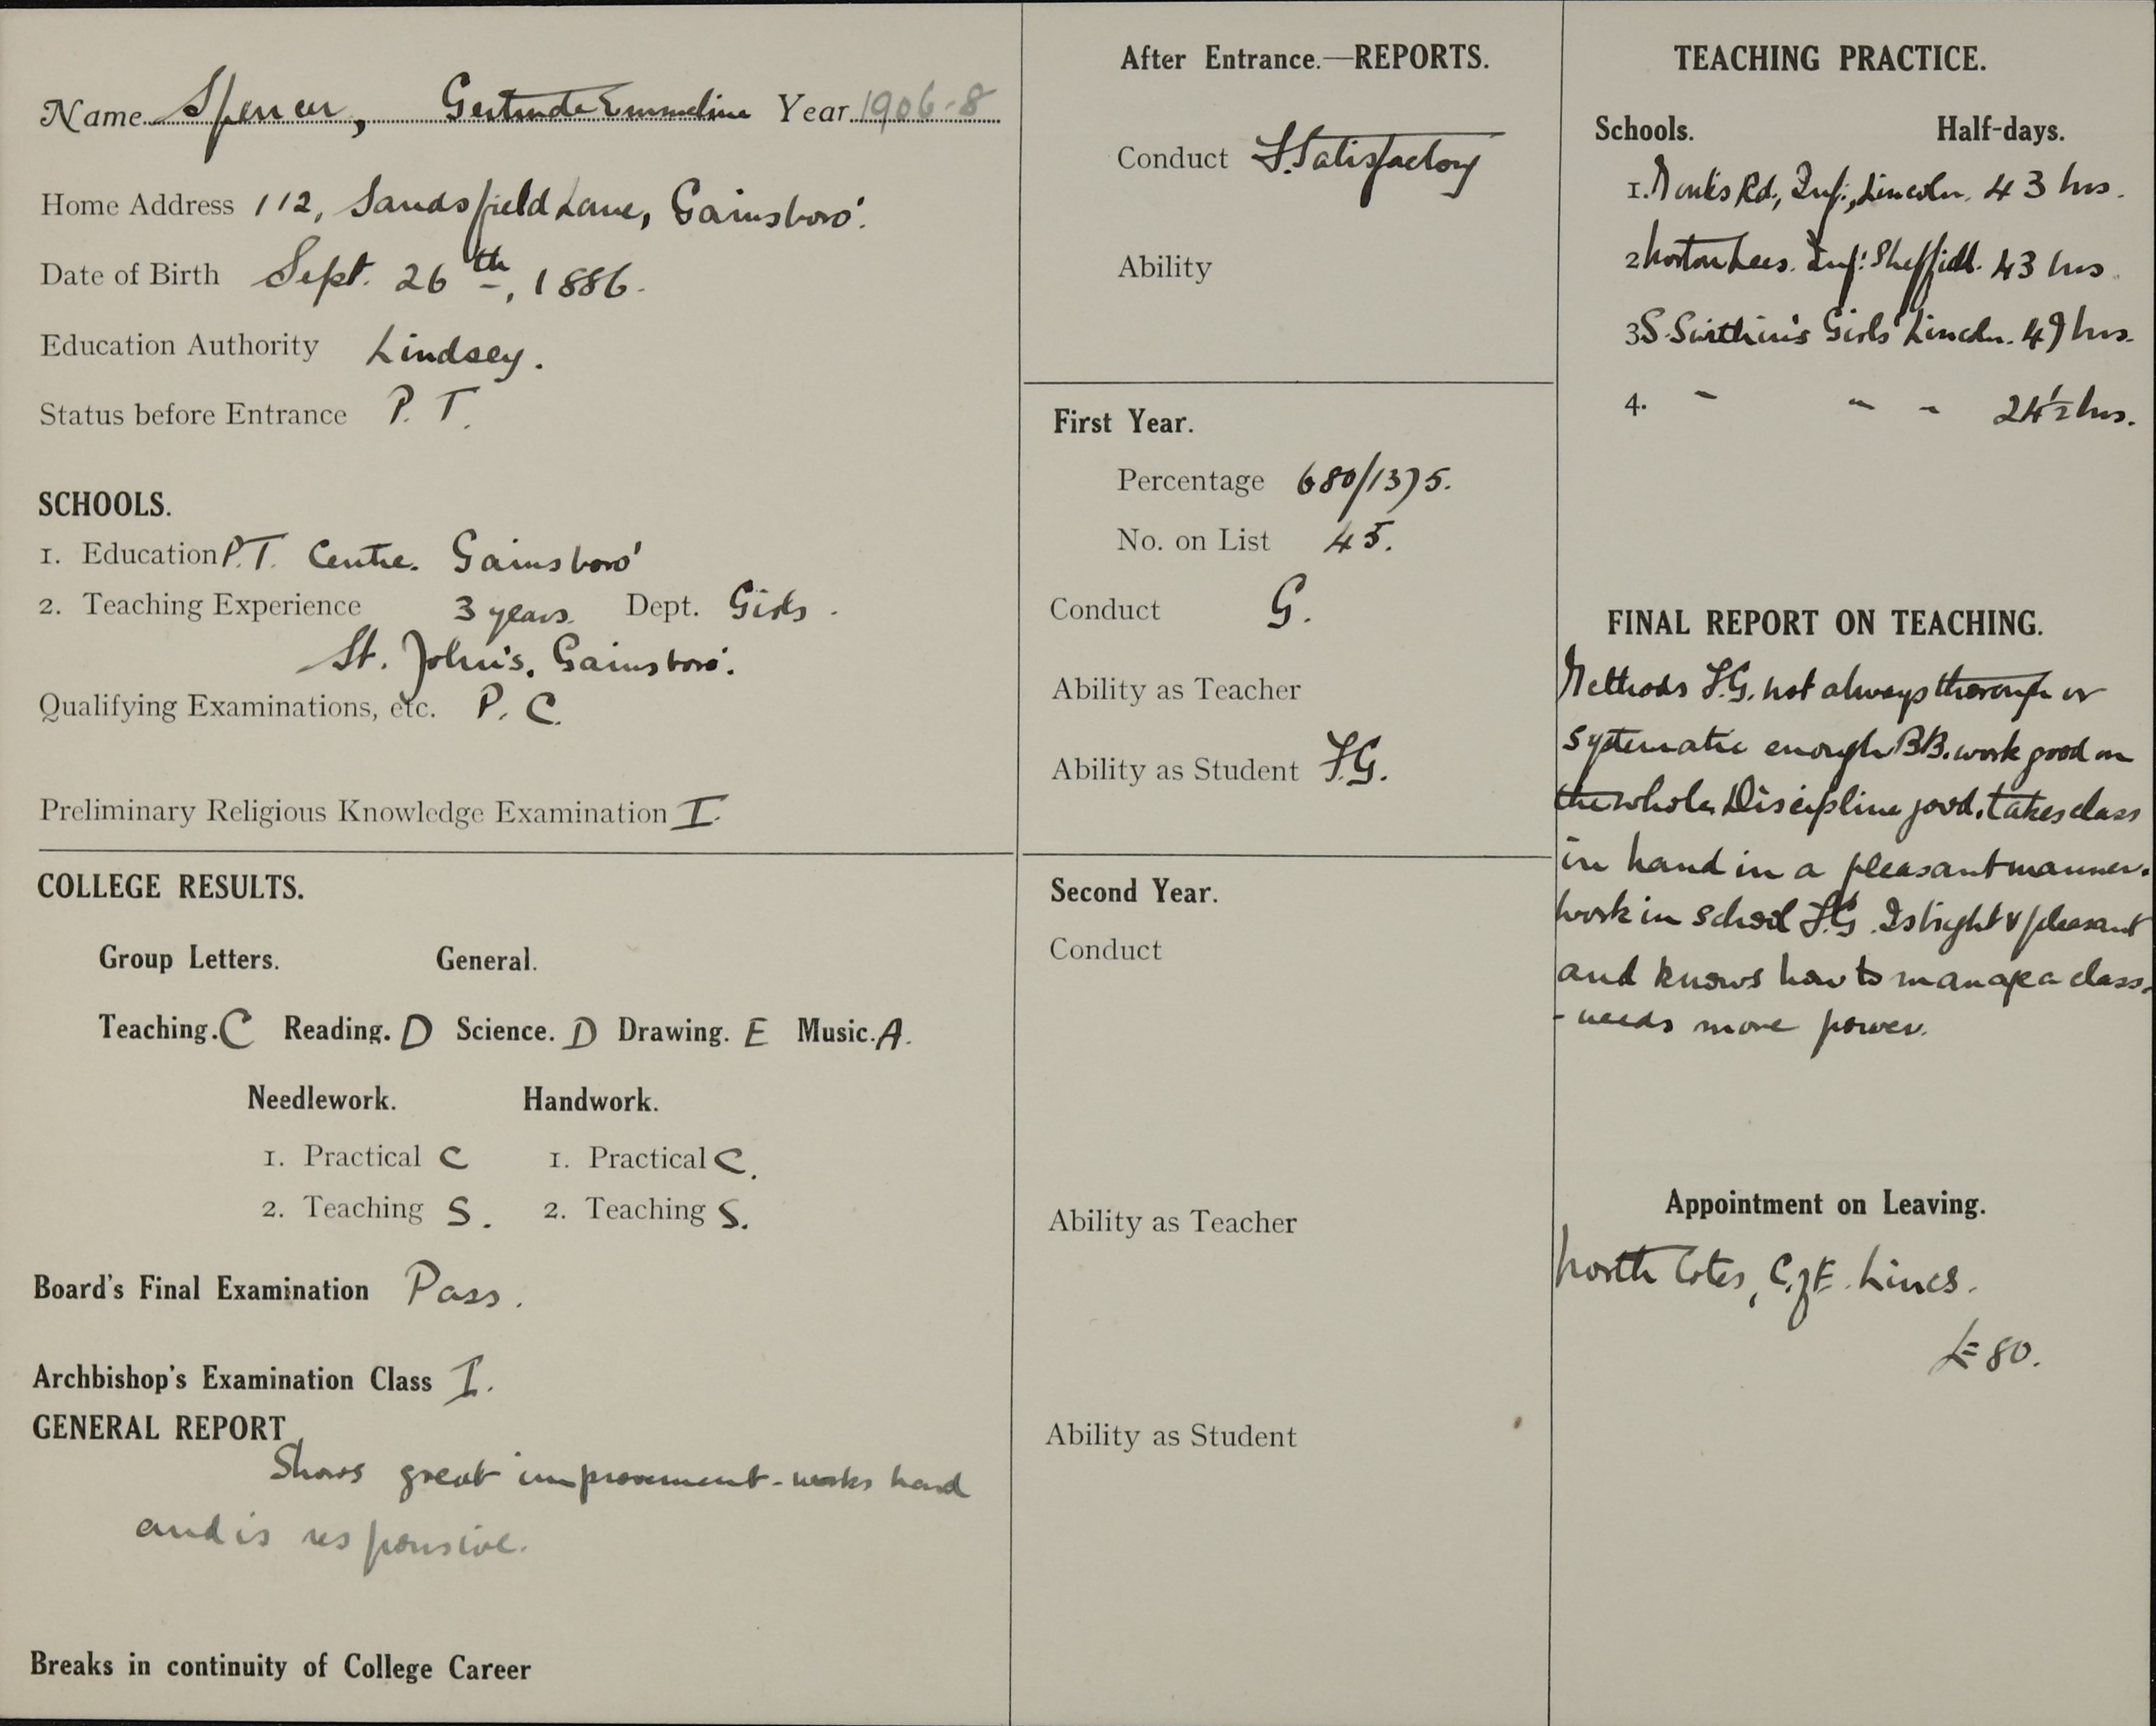 Name Spencer, Gertrude Emmeline Year 1906-8
Home Address 112, Sandsfield Lane, Gainsboro'.
Date of Birth Sept. 26th, 1886.
Education Authority Lindsey.
Status before Entrance P. T.
SCHOOLS.
1. Education P.T. Centre. Gainsboro'
2. Teaching Experience 3 years. Dept. Girls.
St. John's, Gainsboro'.
Qualifying Examinations, etc. P. C.
Preliminary Religious Knowledge Examination I.
COLLEGE RESULTS.
Group Letters. General.
Teaching. C Reading. D Science. D Drawing. E Music. A.
Needlework. Handwork.
1. Practical C 1. Practical C.
2. Teaching S. 2. Teaching S.
Board's Final Examination Pass.
Archbishop's Examination Class I.
GENERAL REPORT
Shows great improvement - works hard
and is responsive.
Breaks in continuity of College Career
After Entrance.—REPORTS.
Conduct F. Satisfactory
Ability
First Year.
Percentage 680/1375.
No. on List 45.
Conduct G.
Ability as Teacher
Ability as Student F.G.
Second Year.
Conduct
Ability as Teacher
Ability as Student
TEACHING PRACTICE.
Schools. Half-days.
1. Monks Rd, Inf:, Lincoln. 43 hrs.
2 Norton Lees. Inf: Sheffield. 43 hrs
3 S. Swithin's Girls' Lincoln. 49 hrs.
4. " " " 24½ hrs.
FINAL REPORT ON TEACHING.
Methods F.G. not always thorough or
systematic enough BB. work good on
the whole. Discipline good. takes class
in hand in a pleasant manner.
Work in school F.G. Is bright & pleasant
and knows how to manage a class.
- needs more power.
Appointment on Leaving.
North Cotes, C. of E. Lincs.
£80.